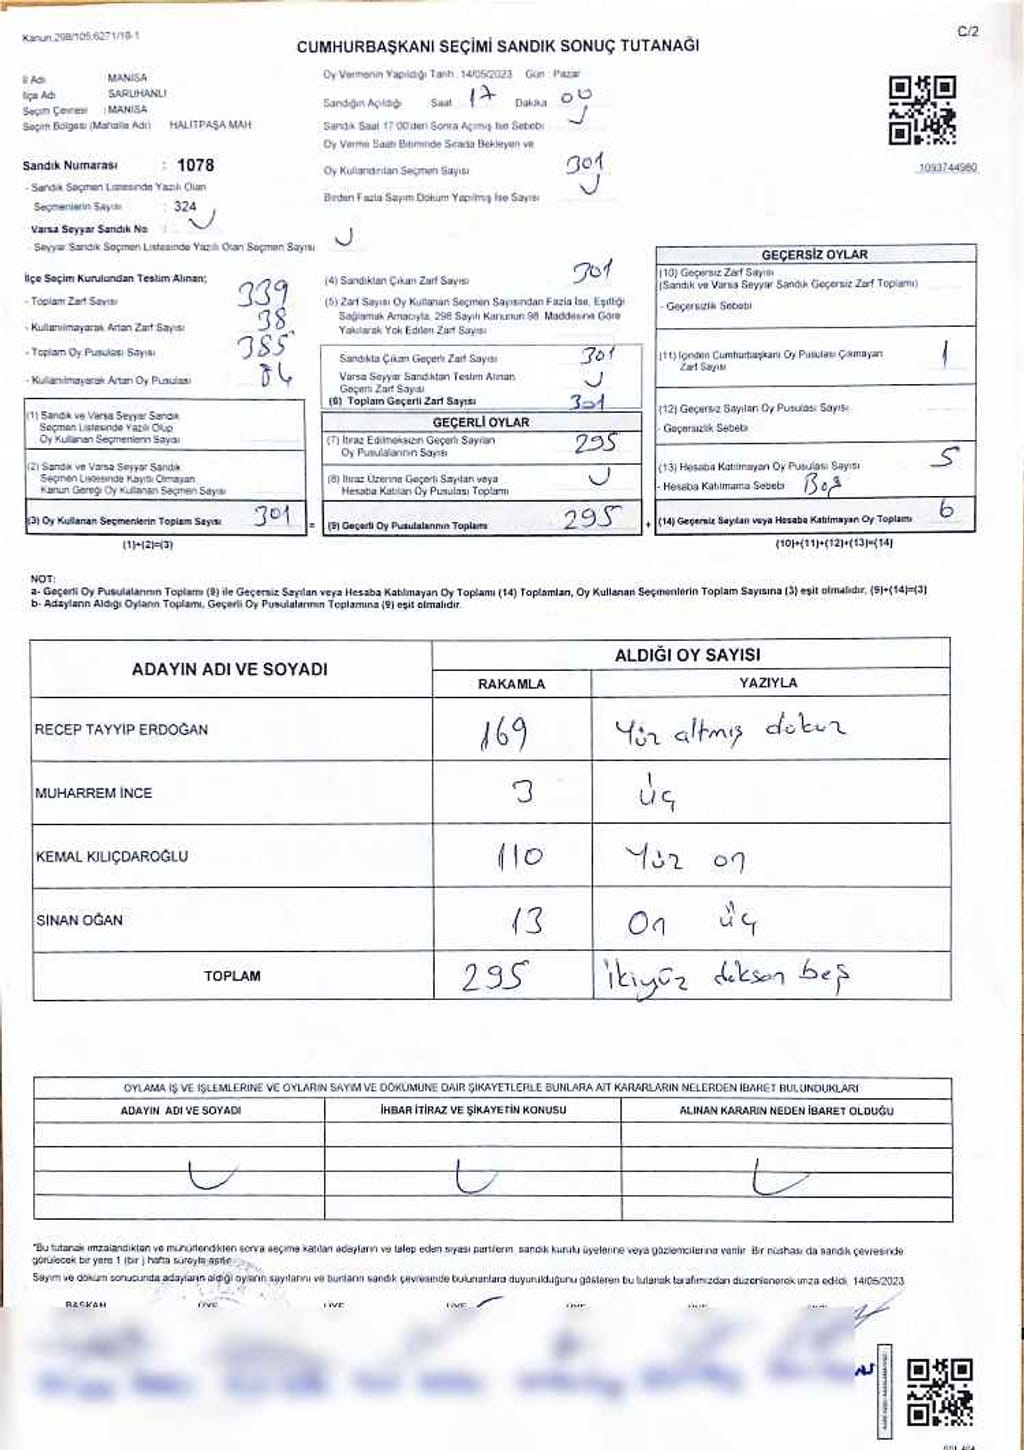 Kanun:298/105,6271/18-1
C/2
CUMHURBAŞKANI SEÇİMİ SANDIK SONUÇ TUTANAĞI
İl Adı : MANİSA
İlçe Adı : SARUHANLI
Seçim Çevresi : MANİSA
Seçim Bölgesi (Mahalle Adı) HALİTPAŞA MAH
Sandık Numarası : 1078
- Sandık Seçmen Listesinde Yazılı Olan
Seçmenlerin Sayısı : 324
Varsa Seyyar Sandık No :
- Seyyar Sandık Seçmen Listesinde Yazılı Olan Seçmen Sayısı
Oy Vermenin Yapıldığı Tarih : 14/05/2023 Gün : Pazar
Sandığın Açıldığı Saat 17 Dakika 00
Sandık Saat 17:00'den Sonra Açılmış İse Sebebi
Oy Verme Saati Bitiminde Sırada Bekleyen ve
Oy Kullandırılan Seçmen Sayısı 301
Birden Fazla Sayım Döküm Yapılmış İse Sayısı
1093744960
İlçe Seçim Kurulundan Teslim Alınan;
- Toplam Zarf Sayısı 339
- Kullanılmayarak Artan Zarf Sayısı 38
- Toplam Oy Pusulası Sayısı 385
- Kullanılmayarak Artan Oy Pusulası 84
(1) Sandık ve Varsa Seyyar Sandık
Seçmen Listesinde Yazılı Olup
Oy Kullanan Seçmenlerin Sayısı
(2) Sandık ve Varsa Seyyar Sandık
Seçmen Listesinde Kayıtlı Olmayan
Kanun Gereği Oy Kullanan Seçmen Sayısı
(3) Oy Kullanan Seçmenlerin Toplam Sayısı 301
(1)+(2)=(3)
(4) Sandıktan Çıkan Zarf Sayısı 301
(5) Zarf Sayısı Oy Kullanan Seçmen Sayısından Fazla İse, Eşitliği
Sağlamak Amacıyla, 298 Sayılı Kanunun 98. Maddesine Göre
Yakılarak Yok Edilen Zarf Sayısı
Sandıkta Çıkan Geçerli Zarf Sayısı 301
Varsa Seyyar Sandıktan Teslim Alınan
Geçerli Zarf Sayısı
(6) Toplam Geçerli Zarf Sayısı 301
GEÇERLİ OYLAR
(7) İtiraz Edilmeksizin Geçerli Sayılan
Oy Pusulalarının Sayısı 295
(8) İtiraz Üzerine Geçerli Sayılan veya
Hesaba Katılan Oy Pusulası Toplamı
= (9) Geçerli Oy Pusulalarının Toplamı 295 +
GEÇERSİZ OYLAR
(10) Geçersiz Zarf Sayısı
(Sandık ve Varsa Seyyar Sandık Geçersiz Zarf Toplamı)
- Geçersizlik Sebebi
(11) İçinden Cumhurbaşkanı Oy Pusulası Çıkmayan
Zarf Sayısı 1
(12) Geçersiz Sayılan Oy Pusulası Sayısı
- Geçersizlik Sebebi
(13) Hesaba Katılmayan Oy Pusulası Sayısı 5
- Hesaba Katılmama Sebebi Boş
(14) Geçersiz Sayılan veya Hesaba Katılmayan Oy Toplamı 6
(10)+(11)+(12)+(13)=(14)
NOT:
a- Geçerli Oy Pusulalarının Toplamı (9) ile Geçersiz Sayılan veya Hesaba Katılmayan Oy Toplamı (14) Toplamları, Oy Kullanan Seçmenlerin Toplam Sayısına (3) eşit olmalıdır, (9)+(14)=(3)
b- Adayların Aldığı Oyların Toplamı, Geçerli Oy Pusulalarının Toplamına (9) eşit olmalıdır.
ADAYIN ADI VE SOYADI
ALDIĞI OY SAYISI
RAKAMLA YAZIYLA
RECEP TAYYİP ERDOĞAN 169 Yüz altmış dokuz
MUHARREM İNCE 3 üç
KEMAL KILIÇDAROĞLU 110 Yüz on
SİNAN OĞAN 13 On üç
TOPLAM 295 İkiyüz doksan beş
OYLAMA İŞ VE İŞLEMLERİNE VE OYLARIN SAYIM VE DÖKÜMÜNE DAİR ŞİKAYETLERLE BUNLARA AİT KARARLARIN NELERDEN İBARET BULUNDUKLARI
ADAYIN ADI VE SOYADI İHBAR İTİRAZ VE ŞİKAYETİN KONUSU ALINAN KARARIN NEDEN İBARET OLDUĞU
"Bu tutanak imzalandıktan ve mühürlendikten sonra seçime katılan adayların ve talep eden siyasi partilerin, sandık kurulu üyelerine veya gözlemcilerine verilir. Bir nüshası da sandık çevresinde
görülecek bir yere 1 (bir ) hafta süreyle asılır.
Sayım ve döküm sonucunda adayların aldığı oyların sayılarını ve bunların sandık çevresinde bulunanlara duyurulduğunu gösteren bu tutanak tarafımızdan düzenlenerek imza edildi. 14/05/2023
BAŞKAN ÜYE ÜYE ÜYE ÜYE ÜYE